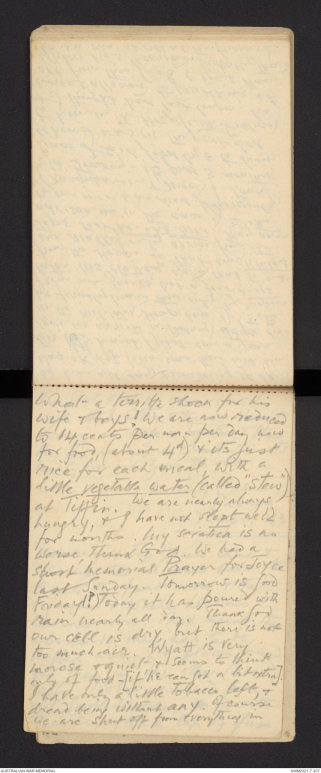 What a terrible shock for his
wife & boys! We are now reduced
to 14 cents per man per day now
for food, (about 4d) & its just
rice for each meal, with a
little vegetable water (called 'stew')
at Tiffin. We are nearly always
hungry, & I have not slept well
for months. My sciatica is no
worse thank God. We had a
short memorial Prayer for Joyce
last Sunday. Tomorrow is Good
Friday!! Today it has poured with
rain nearly all day. Thank God
our cell is dry, but there is not
too much air. Wyatt is very
morose & quiet & seems to think
only of food - [if he can get a bit extra].
I have only a little tobacco left, &
dread being without any. Of course
we are shut off from everything in
AUSTRALIAN WAR MEMORIAL